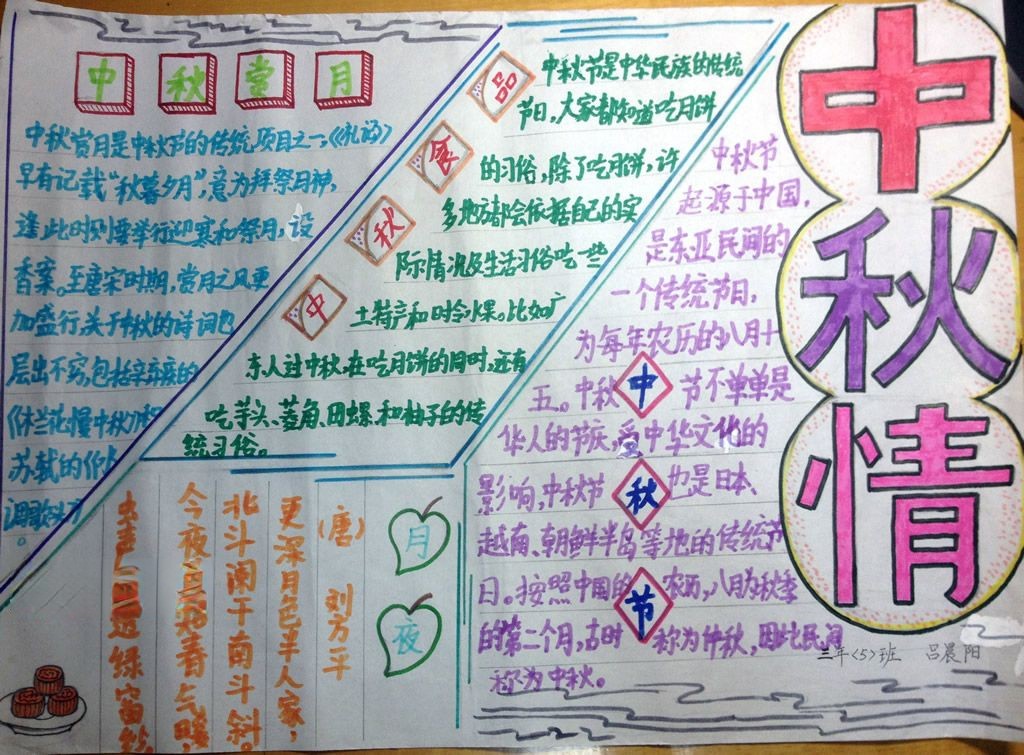 中秋赏月
中秋赏月是中秋节的传统项目之一。《礼记》
早有记载“秋暮夕月”,意为拜祭月神,
逢此时则要举行迎寒和祭月,设
香案。王唐宋时期,赏月之风更
加盛行,关于中秋的诗词也
层出不穷,包括辛弃疾的
《木兰花慢中秋》和
苏轼的《水
调歌头》
。
中秋食品
中秋节是中华民族的传统
节日,大家都知道吃月饼
的习俗,除了吃月饼,许
多地方都会依据自己的实
际情况及生活习俗吃一些
土特产和时令水果。比如广
东人过中秋,在吃月饼的同时,还有
吃芋头、菱角、田螺、和柚子的传
统习俗。
中秋情
中秋节
起源于中国,
是东亚民间的
一个传统节日,
为每年农历的八月十
五。中秋节不单单是
华人的节庆,受中华文化的
影响,中秋节也是日本、
越南、朝鲜半岛等地的传统节
日。按照中国的农历,八月为秋季
的第二个月,古时称为仲秋,因此民间
称为中秋。
中
秋
节
三年<5>班 吕晨阳
月夜
(唐) 刘方平
更深月色半人家,
北斗阑干南斗斜。
今夜春气暖,
虫声绿窗纱。